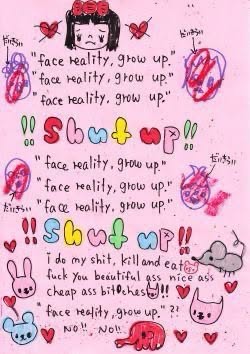 だいきらい
だいきらい
"face reality, grow up."
"face reality, grow up."
"face reality, grow up."
!! Shut up!!
だいきらい
"face reality, grow up."
"face reality, grow up."
だいきらい
"face reality, grow up."
!! Shut up!!
i do my shit, kill and eat
fuck you beautiful ass nice ass
cheap ass bitches!!
"face reality, grow up." ??
NO!!. NO!!